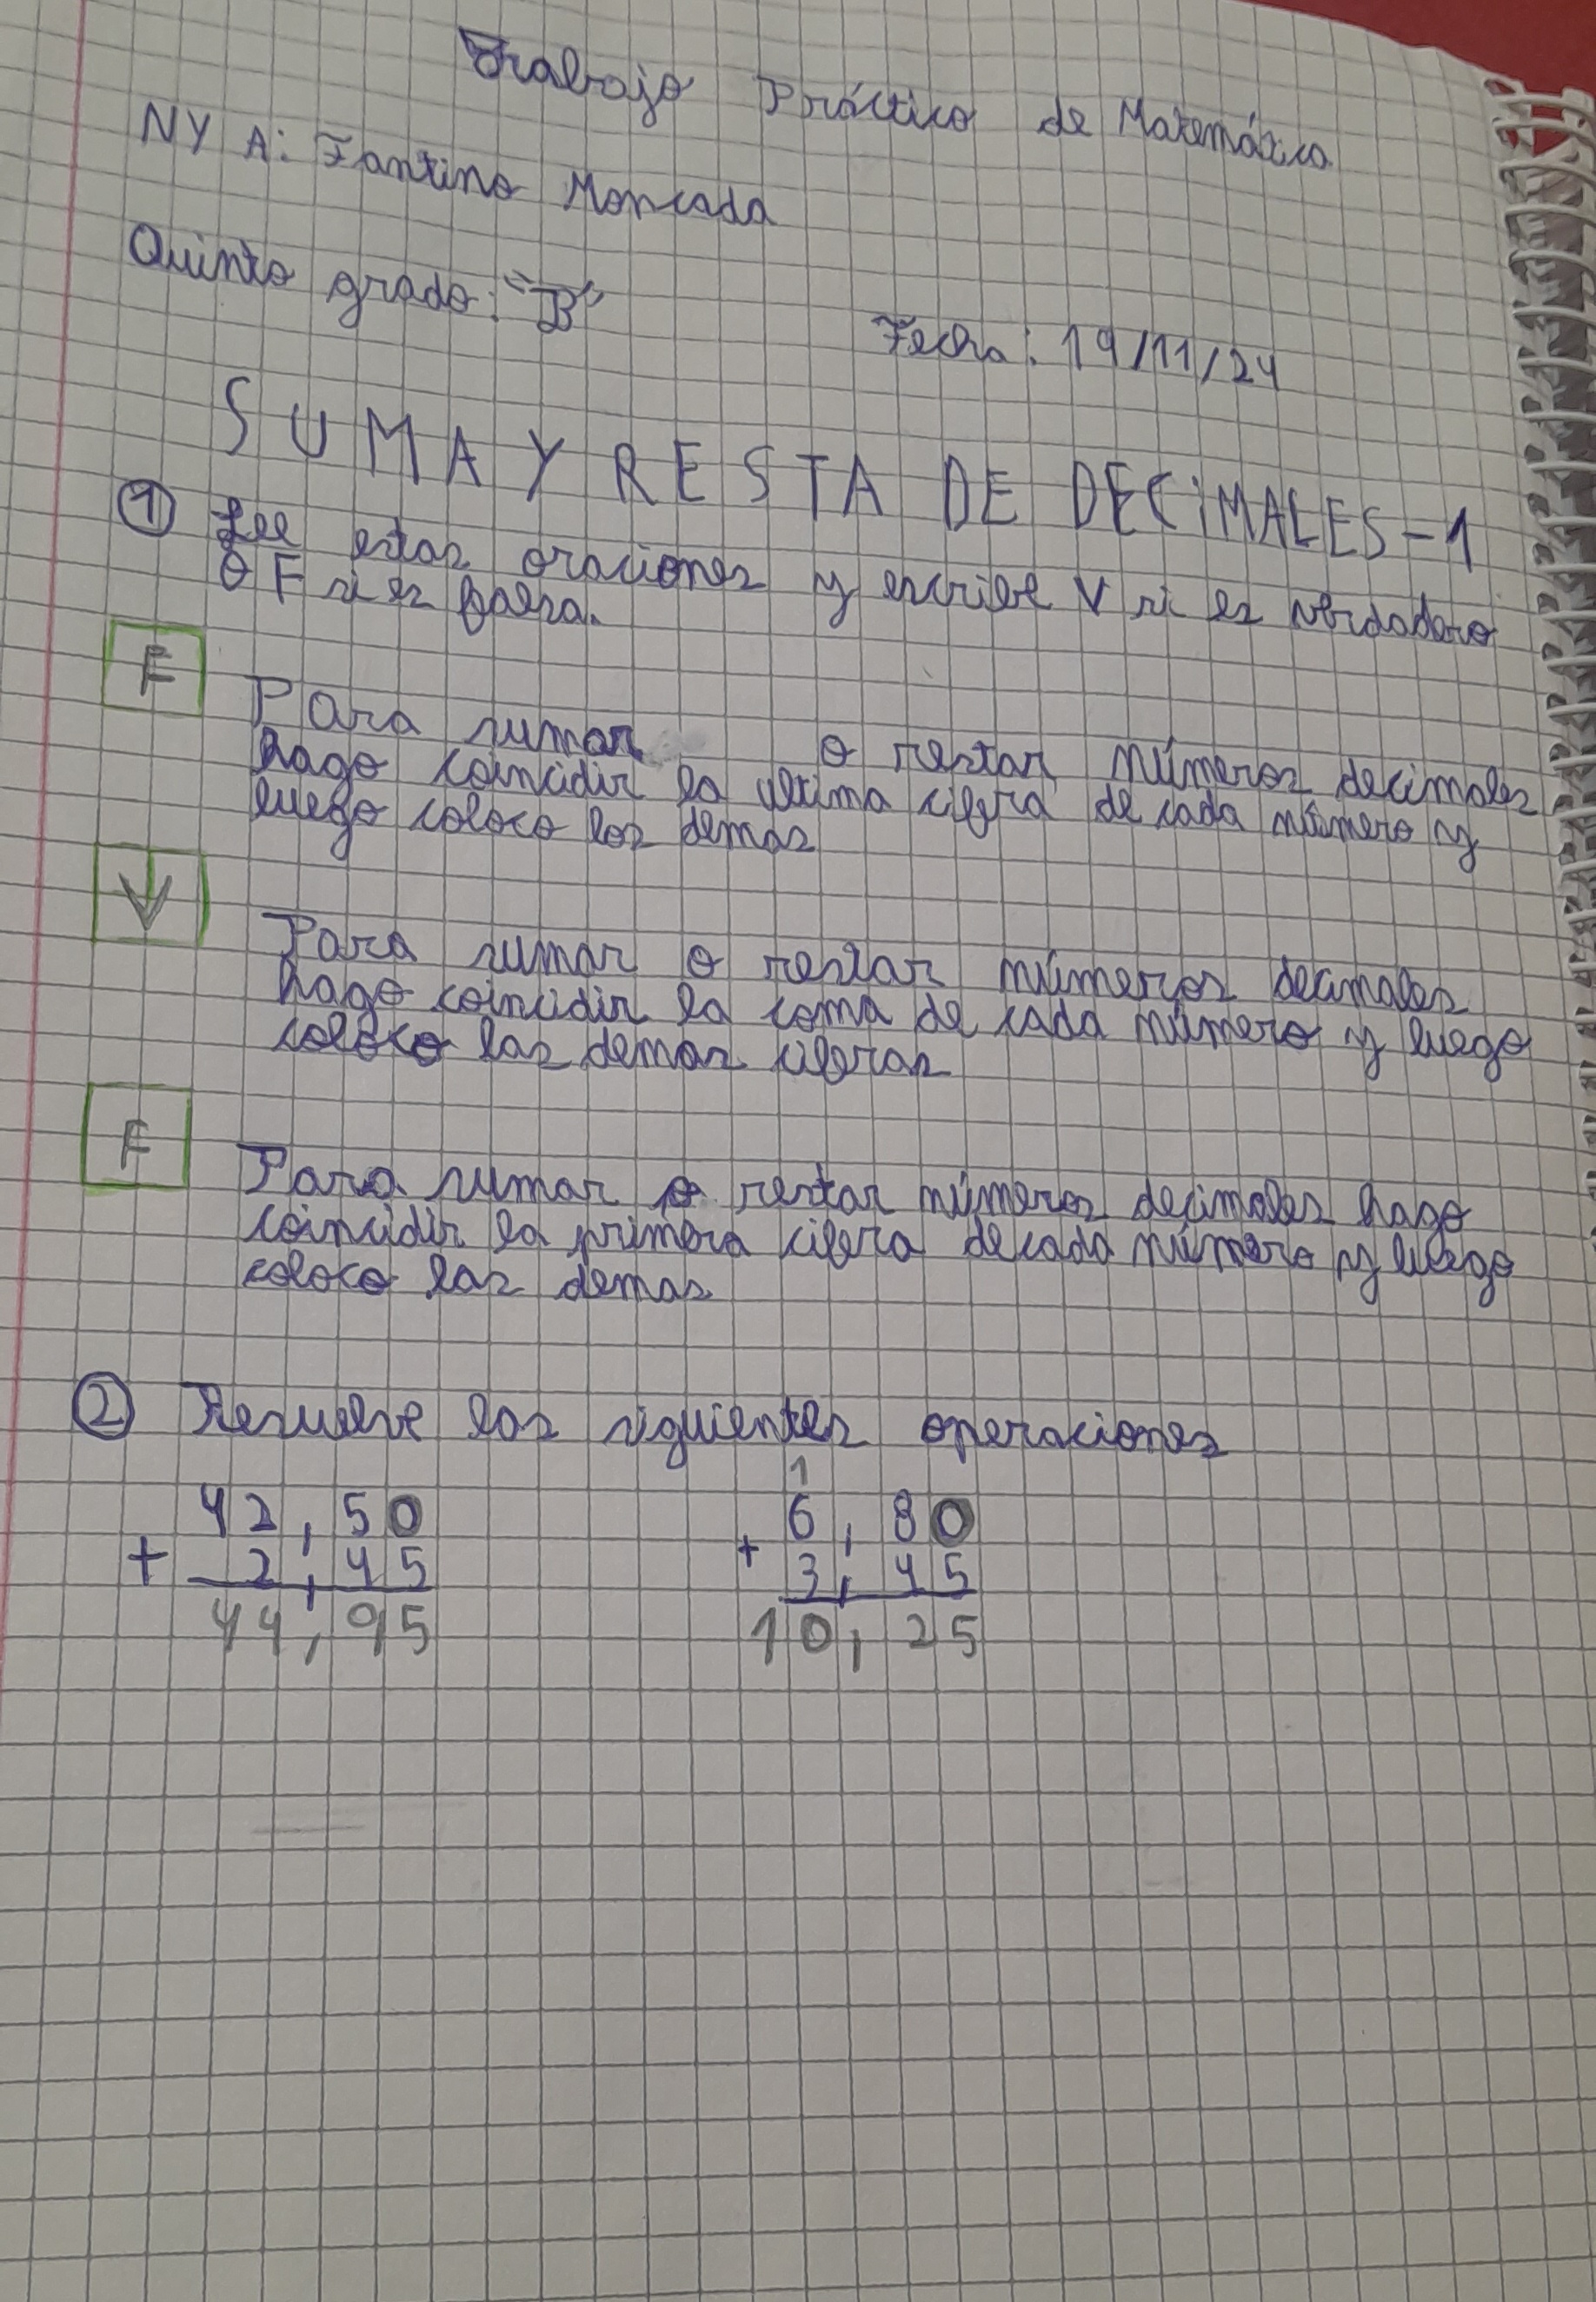 Trabajo Práctico de Matemática
N Y A: Fantino Moncada
Quinto grado: "B"
Fecha: 19/11/24
SUMA Y RESTA DE DECIMALES-1
① Lee estas oraciones y escribe V si es verdadero
O F si es falsa.
F
Para sumar o restar números decimales
hago coincidir la ultima cifra de cada número y
luego coloco los demas
V
Para sumar o restar números decimales
hago coincidir la coma de cada número y luego
coloco las demas cifras
F
Para sumar o restar números decimales hago
coincidir la primera cifra de cada número y luego
coloco las demas
② Resuelve las siguientes operaciones
1
42,50 6,80
+ 2,45 + 3,45
44,95 10,25